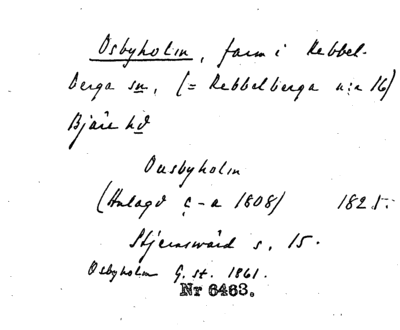 Osbyholm, farm i Rebbel-
berga sn, (= Rebbelberga n:a 16)
Bjäre hd
Ousbyholm
(Anlagd c-a 1808) 1825.
Stjernswärd s. 15.
Osbyholm G. st. 1861.
Nr 6463.